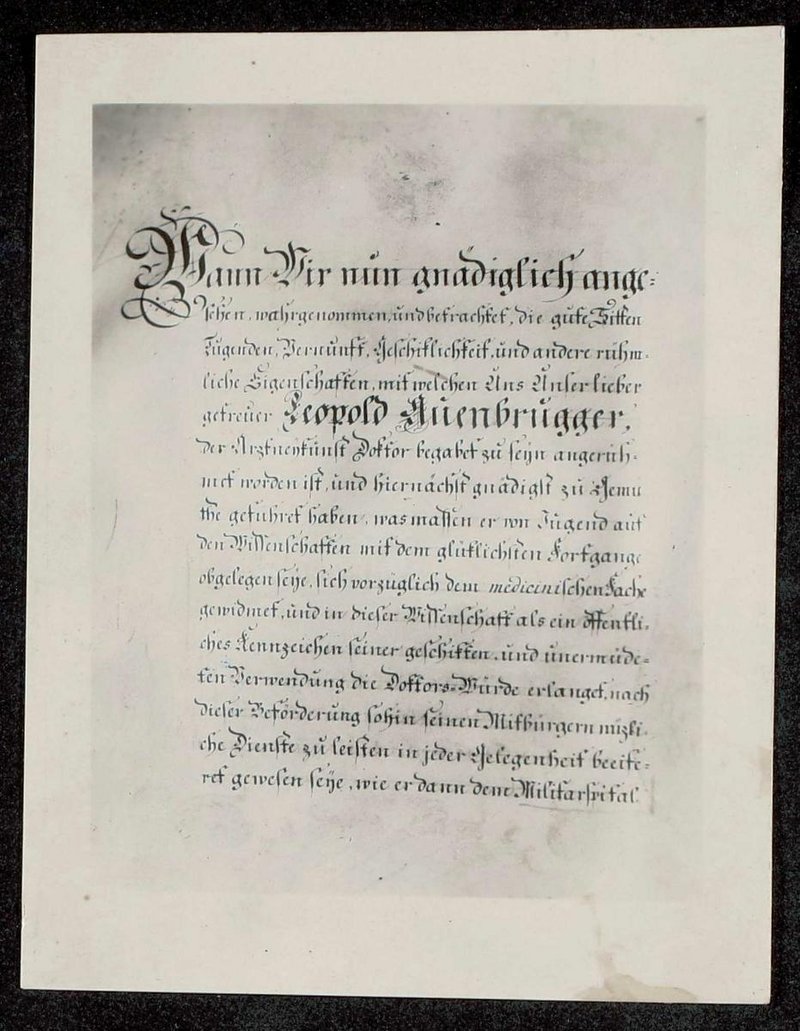 Wann Wir nŭn gnädiglich ange-
sehen, wahrgenommen, ŭnd betrachtet, die gŭte Sitten
Tŭgenden, Vernŭnft, Geschiklichkeit, ŭnd andere rühm-
liche Eigenschaften, mit welchen Uns Unser lieber
getreuer Leopold Aŭenbrŭgger,
der Arztneykŭnst Doktor begabet zŭ seÿn angerüh-
met worden ist, ŭnd hiernächst gnädigst zŭ Gemü
the geführet haben, was massen er von Jŭgend aŭf
den Wissenschaften mit dem glüklichsten Fortgange
obgelegen seÿe, sich vorzüglich dem medicinischen Fache
gewidmet, ŭnd in dieser Wissenschaft als ein öffentli-
ches Kennzeichen seiner geschikten, ŭnd ŭnermüde-
ten Verwendŭng die Doktors-Würde erlanget, nach
dieser Beförderŭng sohin seinen Mitbürgern nüzli-
che Dienste zŭ leisten in jeder Gelegenheit beeife-
ret gewesen seÿe, wie er dann dem Militarspital